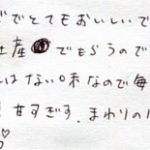 でとてもおいしいで
産 でもらうので
はない味なので毎
甘すぎず、まわりの